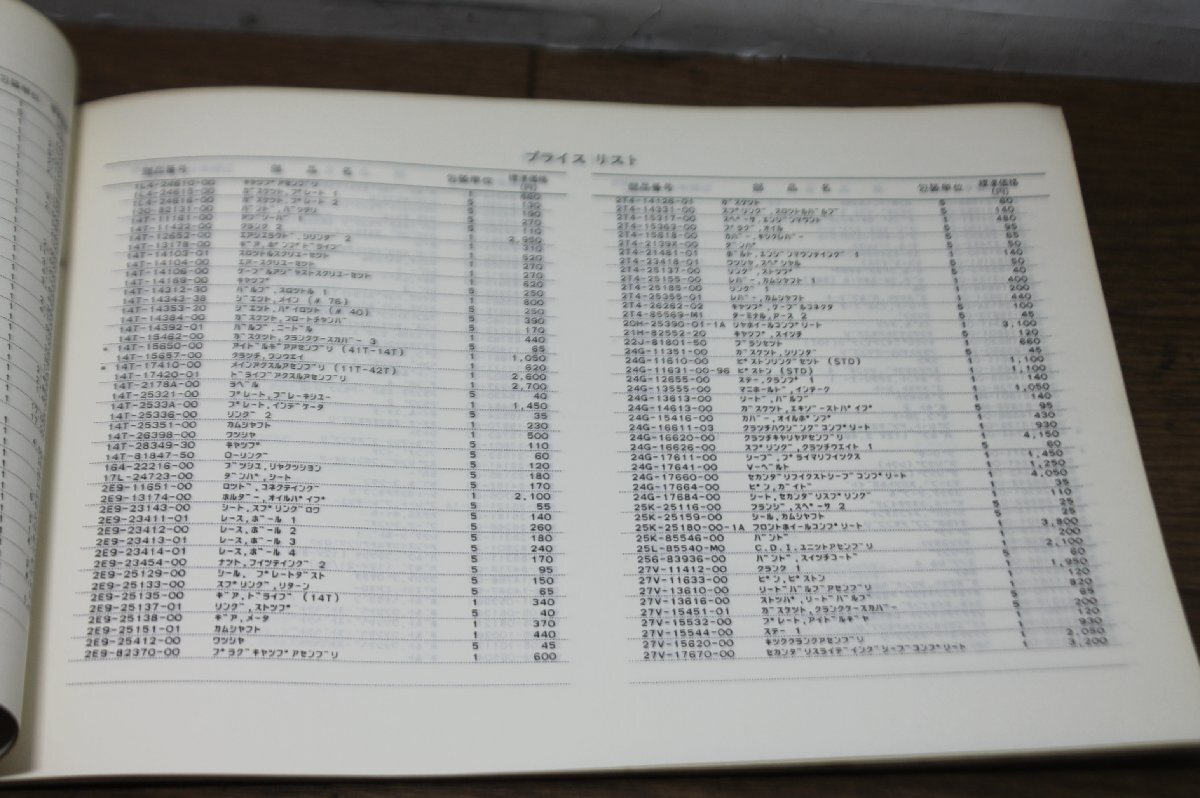 プライス リスト
部品番号 部 品 名 包装単位 標準価格(円)
1L4-24610-00 キヤツプアセンブリ 1 680
1L4-24615-00 ガスケツト,プレート 1 5
1L4-24616-00 ガスケツト,プレート 2 5 130
130-82131-00 バンド,バツテリ 5 190
14T-11181-00 1 270
14T-11422-00 クランク 2 5 110
14T-12652-00 エアシユラウド,シリンダ 2 1 2,950
14T-13178-00 ギア,ポンプドライブ 1 310
14T-14103-01 スロツトルスクリユーセツト 1 520
14T-14104-00 エアースクリユーセツト 1 270
14T-14106-00 ケーブルアジヤストスクリユーセツト 1 270
14T-14169-00 キヤツプ 1 620
14T-14312-30 バルブ,スロツトル 1 1 250
14T-14343-38 ジエツト,メイン (# 76) 1 600
14T-14353-20 ジエツト,パイロツト (# 40) 1 250
14T-14384-00 ガスケツト,フロートチヤンバ 1 390
14T-14392-01 バルブ,ニードル 1 170
14T-15462-00 ガスケツト,クランクケースカバー 3 1 440
* 14T-15650-00 アイドルギアアセンブリ (41T-14T) 5 65
14T-15657-00 クラツチ,ワンウエイ 1 1,050
* 14T-17410-00 メインアクスルアセンブリ (11T-42T) 1 620
14T-17420-01 ドライブアクスルアセンブリ 1 2,600
14T-2178A-00 ラベル 1 2,700
14T-25321-00 プレート,ブレーキシユー 5 40
14T-2533A-00 プレート,インデケータ 1 1,450
14T-25336-00 リング 2 5 35
14T-25351-00 カムシヤフト 1 230
14T-26398-00 ワツシヤ 1 500
14T-28349-30 キヤツプ 5 110
14T-81847-50 ローリング 5 60
164-22216-00 ブツシユ,リヤクツシヨン 5 120
17L-24723-00 ダンパ,シート 5 180
2E9-11651-00 ロツド,コネクテイング 5 170
2E9-13174-00 ホルダー,オイルパイプ 1 2,100
2E9-23143-00 シート,スプリングロワ 5 55
2E9-23411-01 レース,ボール 1 5 140
2E9-23412-00 レース,ボール 2 5 260
2E9-23413-01 レース,ボール 3 5 180
2E9-23414-01 レース,ボール 4 5 240
2E9-23454-00 ナツト,フイツテイング 2 5 170
2E9-25129-00 シール, プレートダスト 5 95
2E9-25133-00 スプリング,リターン 5 150
2E9-25135-00 ギア,ドライブ (14T) 5 65
2E9-25137-01 リング,ストツプ 1 340
2E9-25138-00 ギア,メータ 5 40
2E9-25151-01 カムシヤフト 1 370
2E9-25412-00 ワツシヤ 1 440
2E9-82370-00 プラグキヤツプアセンブリ 5 45
1 600
部品番号 部 品 名 包装単位 標準価格(円)
2T4-14126-01 ガスケツト 5 60
2T4-14331-00 スプリング,スロツトルバルブ 5 140
2T4-15317-00 スペーサ,エンジンマウント 1 480
2T4-15363-00 プラグ,オイル 5 95
2T4-15618-00 カバー,キツクレバー 5 65
2T4-2139X-00 ダンパ 5 50
2T4-21481-01 ボルト,エンジンマウンテイング 1 1 140
2T4-23418-01 ワツシヤ,スペシヤル 5 50
2T4-25137-00 リング,ストツプ 5 40
2T4-25155-00 レバー,カムシヤフト 1 1 400
2T4-25185-00 リング 1 5 200
2T4-25355-01 レバー,カムシヤフト 1 440
2T4-26282-02 キヤツプ,ケーブルコネクタ 5 100
2T4-85569-M1 ターミナル,アース 2 5 45
20H-25390-01-1A リヤホイールコンプリート 1 3,100
21H-82552-20 キヤツプ,スイツチ 5 120
22J-81801-50 ブラシセツト 1 660
24G-11351-00 ガスケツト,シリンダ 5 45
24G-11610-00 ピストンリングセツト (STD) 1 1,100
24G-11631-00-96 ピストン (STD) 1 1,100
24G-12655-00 ステー,クランプ 1 140
24G-13555-00 マニホールド,インテーク 1 1,050
24G-13613-00 リード,バルブ 1 140
24G-14613-00 ガスケツト,エキゾーストパイプ 5 95
24G-15416-00 カバー,オイルポンプ 1 430
24G-16611-03 クラツチハウジングコンプリート 1 930
24G-16620-00 クラツチキヤリヤアセンブリ 1 4,150
24G-16626-00 スプリング,クラツチウエイト 1 5 60
24G-17611-00 シーブ,プライマリフイツクス 1 1,450
24G-17641-00 V-ベルト 1 1,250
24G-17660-00 セカンダリフイクストシーブコンプリート 1 4,050
24G-17664-00 ピン,ガイド 5 35
24G-17684-00 シート,セカンダリスプリング 1 110
25K-25116-00 フランジ,スペーサ 2 5 25
25K-25159-00 シール,カムシヤフト 5 25
25K-25180-00-1A フロントホイールコンプリート 1 3,800
25K-85546-00 バンド 1 200
25L-85540-M0 C.D.I.ユニツトアセンブリ 1 2,100
256-83936-00 バンド,スイツチコード 5 60
27V-11412-00 クランク 1 1 1,950
27V-11633-00 ピン,ピストン 1 120
27V-13610-00 リードバルブアセンブリ 1 820
27V-13616-00 ストツパ,リードバルブ 5 65
27V-15451-01 ガスケツト,クランクケースカバー 5 200
27V-15532-00 プレート,アイドルギヤ 1 120
27V-15544-00 ステー 1 1 930
27V-15620-00 キツククランクアセンブリ 1 2,050
27V-17670-00 セカンダリスライデイングシーブコンプリート 1 3,200